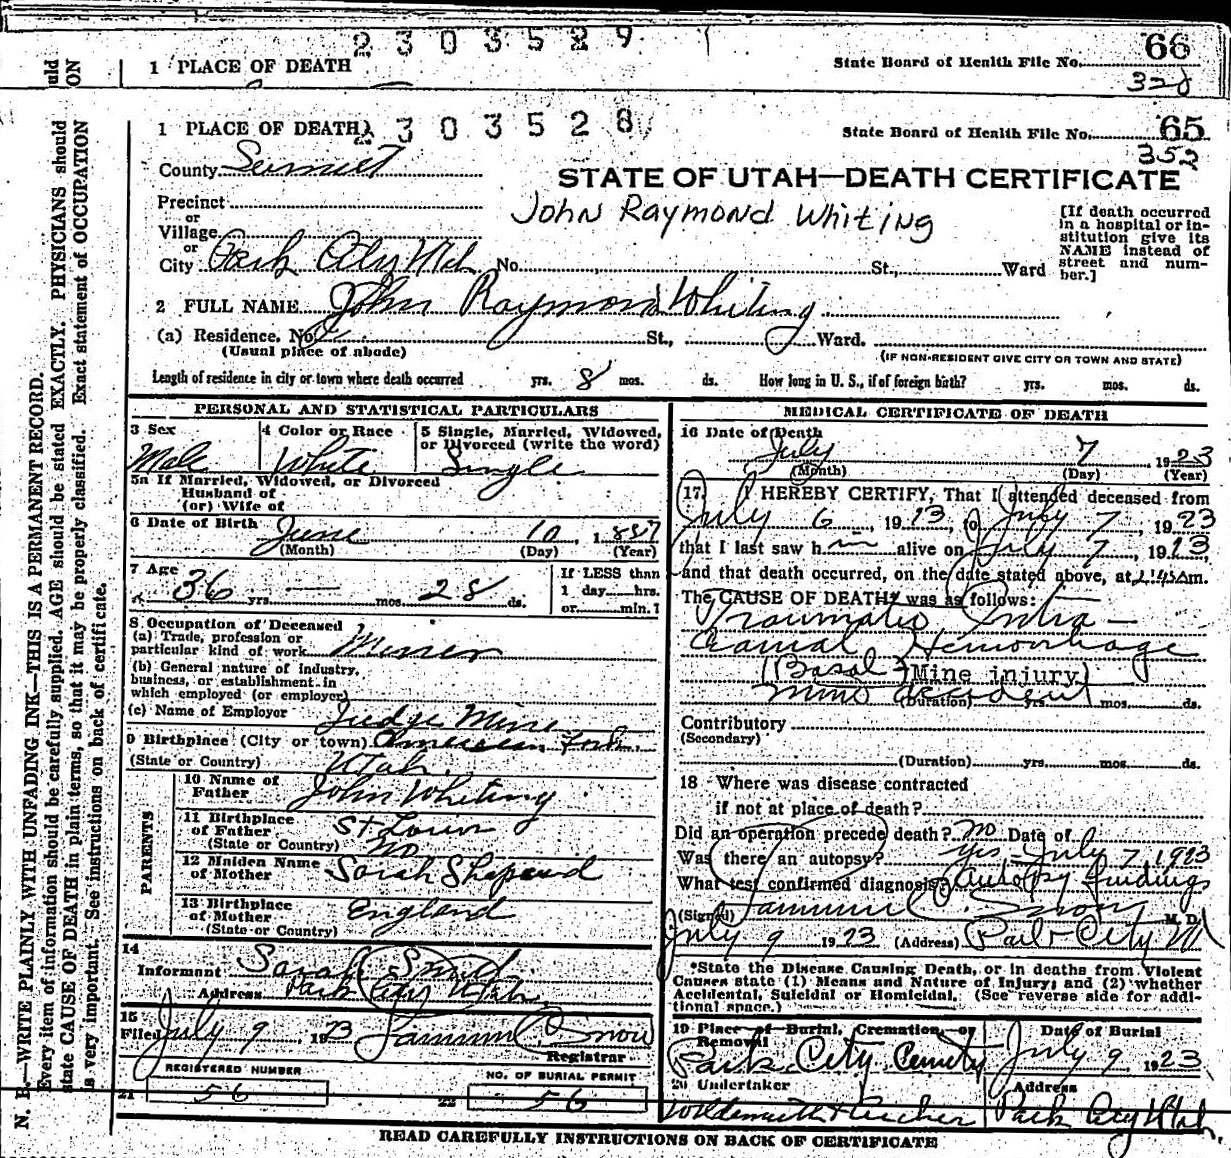 2303529
66
1 PLACE OF DEATH
State Board of Health File No.
328
uld
ON
1 PLACE OF DEATH 2303528
State Board of Health File No. 65
352
County Summit
STATE OF UTAH—DEATH CERTIFICATE
Precinct
or
Village
or
City Park City Utah No. St., Ward
John Raymond Whiting
[If death occurred
in a hospital or in-
stitution give its
NAME instead of
street and num-
ber.]
2 FULL NAME John Raymond Whiting
(a) Residence. No. St., Ward.
(Usual place of abode)
(IF NON-RESIDENT GIVE CITY OR TOWN AND STATE)
Length of residence in city or town where death occurred yrs. 8 mos. ds. How long in U. S., if of foreign birth? yrs. mos. ds.
PERSONAL AND STATISTICAL PARTICULARS
3 Sex
Male
4 Color or Race
White
5 Single, Married, Widowed,
or Divorced (write the word)
Single
5a If Married, Widowed, or Divorced
Husband of
(or) Wife of
6 Date of Birth
June 10, 1887
(Month) (Day) (Year)
7 Age
36 yrs. — mos. 28 ds.
If LESS than
1 day hrs.
or min.?
8 Occupation of Deceased
(a) Trade, profession or
particular kind of work Miner
(b) General nature of industry,
business, or establishment in
which employed (or employer)
(c) Name of Employer Judge Mine
9 Birthplace (City or town) American Fork,
(State or Country) Utah.
PARENTS
10 Name of
Father John Whiting
11 Birthplace
of Father St Louis
(State or Country) Mo
12 Maiden Name
of Mother Sarah
13 Birthplace
of Mother England
(State or Country)
14
Informant Sarah Smith
Address Park City Utah
15
Filed July 9 1923
Snow
Registrar
REGISTERED NUMBER
21 56
NO. OF BURIAL PERMIT
22 56
MEDICAL CERTIFICATE OF DEATH
16 Date of Death
July 7, 1923
(Month) (Day) (Year)
17 I HEREBY CERTIFY, That I attended deceased from
July 6, 1923, to July 7, 1923
that I last saw him alive on July 7, 1923,
and that death occurred, on the date stated above, at 2:45 am.
The CAUSE OF DEATH* was as follows:
Traumatic Intra-
cranial Hemorrhage
(Basal) (Mine injury)
Mine accident
(Duration) yrs. mos. ds.
Contributory
(Secondary)
(Duration) yrs. mos. ds.
18 Where was disease contracted
if not at place of death?
Did an operation precede death? No Date of
Was there an autopsy? Yes - July 7, 1923
What test confirmed diagnosis? Autopsy findings
(Signed) Snow M. D.
July 9 1923 (Address) Park City Ut
*State the Disease Causing Death, or in deaths from Violent
Causes state (1) Means and Nature of Injury; and (2) whether
Accidental, Suicidal or Homicidal. (See reverse side for addi-
tional space.)
19 Place of Burial, Cremation, or
Removal
Park City Cemetery
Date of Burial
July 9 1923
20 Undertaker
Address
Park City Utah.
READ CAREFULLY INSTRUCTIONS ON BACK OF CERTIFICATE
N. B.—WRITE PLAINLY WITH UNFADING INK—THIS IS A PERMANENT RECORD.
Every item of information should be carefully supplied. AGE should be stated EXACTLY. PHYSICIANS should
state CAUSE OF DEATH in plain terms, so that it may be properly classified. Exact statement of OCCUPATION
is very important. See instructions on back of certificate.